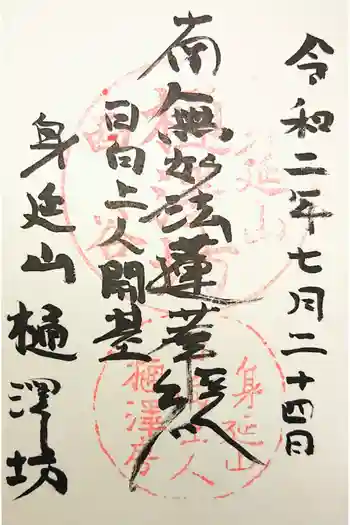 令和二年七月二十四日
南無妙法蓮華経
日向上人開基
身延山 樋澤坊
身延山
樋澤坊